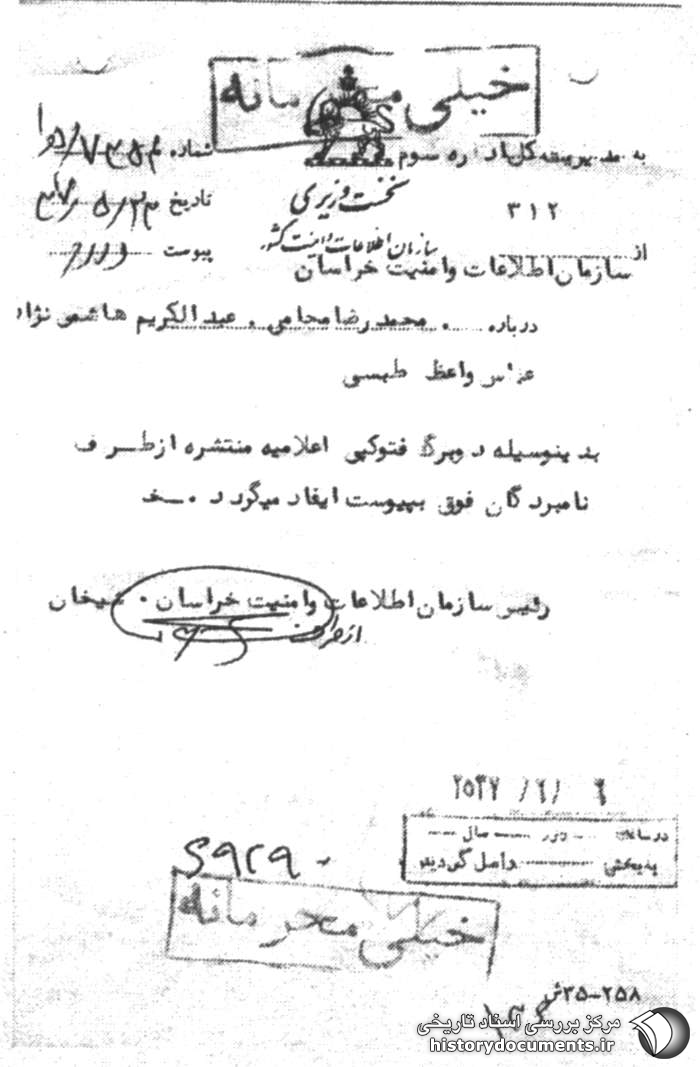 خیلی محرمانه
به مدیریت کل اداره سوم
شماره
۳۱۲
نخست وزیری
تاریخ
از سازمان اطلاعات وامنیت خراسان
سازمان اطلاعات و امنیت کشور
پیوست
درباره محمد رضا محامی . عبدالکریم هاشمی نژاد
عباس واعظ طبسی
بدینوسیله دوبرگ فتوکپی اعلامیه منتشره ازطرف
نامبردگان فوق بپیوست ایفاد میگردد .
رئیس سازمان اطلاعات وامنیت خراسان .
از طرف
۲۵۳۷ /۶/ ۶
در ساعت روز سال
به بخش واصل گردید
خیلی محرمانه
۳۵-۲۵۸ش
مرکز بررسی اسناد تاریخی
historydocuments.ir